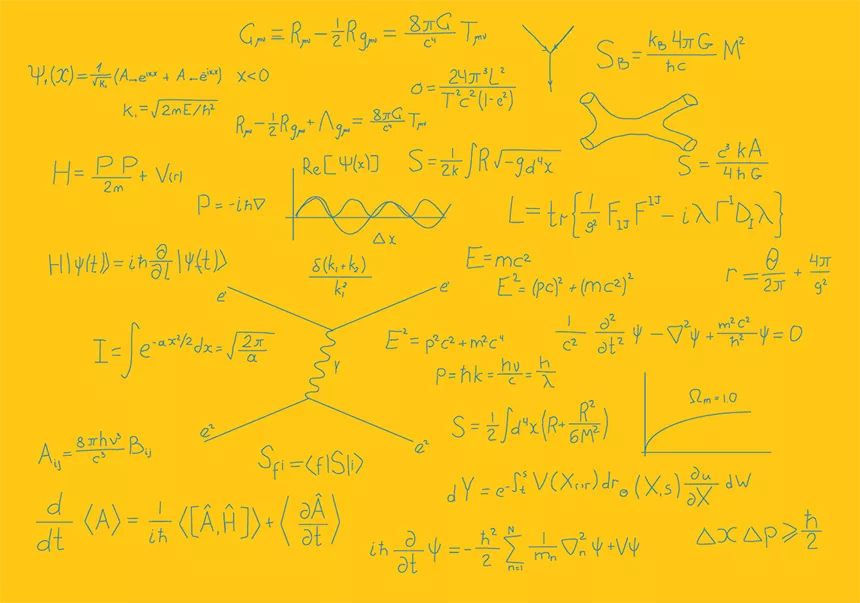 Gμν ≡ Rμν − 1/2 Rgμν = 8πG/c⁴ Tμν
S_B = k_B 4πG/ħc M²
Ψ₁(x) = 1/√k₁ (A→e^ik₁x + A←e^ik₁x) x<0
σ = 24π³L²/T²c²(1−e²)
k₁ = √2mE/ħ²
Rμν − 1/2 Rgμν + Λgμν = 8πG/c⁴ Tμν
H = PP/2m + V(r)
Re[Ψ(x)]
S = 1/2k ∫R√−g d⁴x
S = c³kA/4ħG
P = −iħ∇
Δx
L = tr{1/g² F_IJ F^IJ − iλΓ^I D_I λ}
H|ψ(t)⟩ = iħ ∂/∂t |ψ(t)⟩
δ(k₁+k₂)/k₁²
E=mc²
E² = (pc)² + (mc²)²
r = θ/2π + 4π/g²
e⁻
e⁻
I = ∫e^−ax²/2 dx = √2π/a
γ
E² = p²c² + m²c⁴
1/c² ∂²/∂t² ψ − ∇²ψ + m²c²/ħ² ψ = 0
P = ħk = hν/c = h/λ
Ωm = 1.0
S = 1/2 ∫d⁴x(R + R²/6M²)
e²
e²
A_ij = 8πhν³/c³ B_ij
S_fi = ⟨f|S|i⟩
dY = e^−∫_t^s V(X,r,r)dr σ(X,s) ∂u/∂X dW
d/dt ⟨A⟩ = 1/iħ ⟨[Â,Ĥ]⟩ + ⟨∂Â/∂t⟩
iħ ∂/∂t ψ = −ħ²/2 ∑_n=1^N 1/m_n ∇_n² ψ + Vψ
Δx Δp ⩾ ħ/2